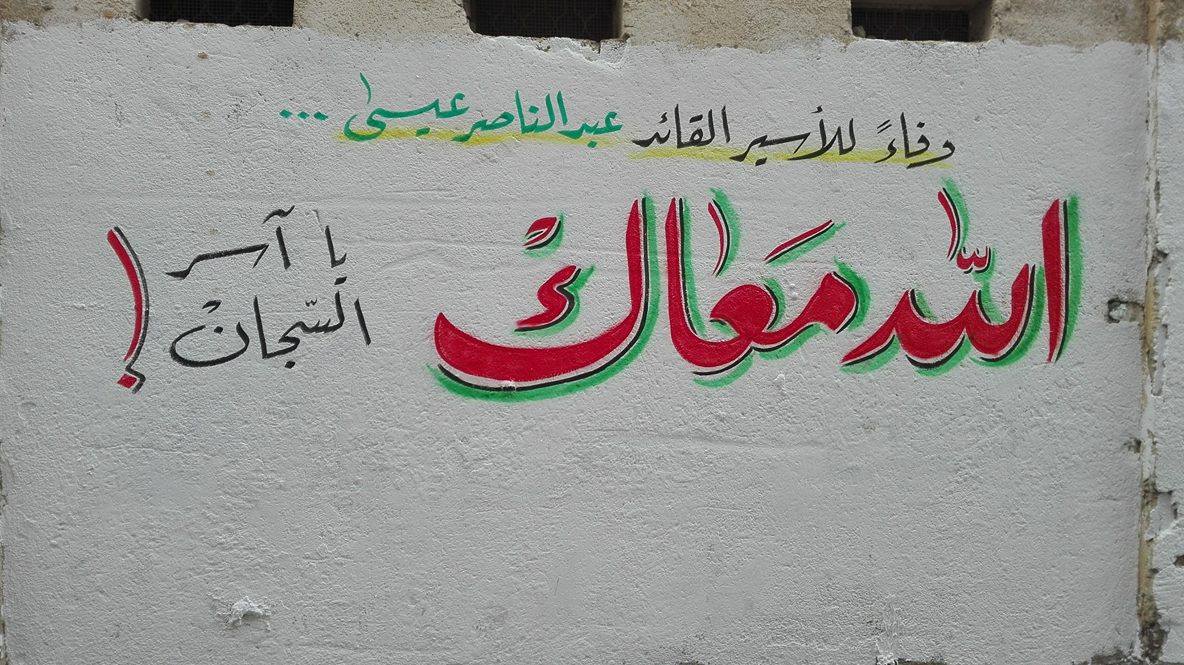 وفاءً للأسير القائد عبد الناصر عيسى ...
الله مَعاكْ
يا آسر
السّجانْ !